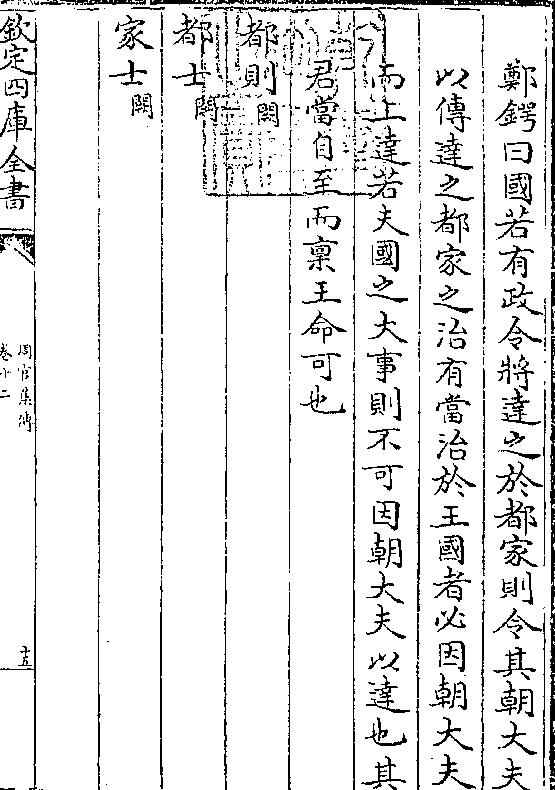 鄭鍔曰國若有政令將達之於都家則令其朝大夫
以傳達之都家之治有當治於王國者必因朝大夫
而上達若夫國之大事則不可因朝大夫以達也其
君當自至而稟王命可也
都則闕
都士闕
家士闕
欽定四庫全書
周官集傳
卷十二
十五